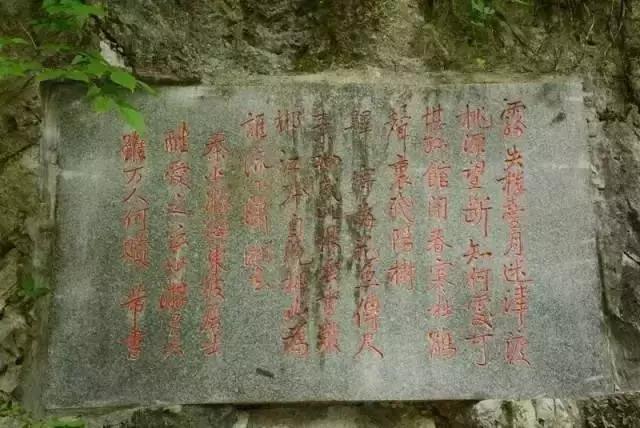 霧失樓臺月迷津渡
桃源望斷知何處可
堪孤館閉春寒杜鵑
聲裏殘陽樹
驛寄梅花魚傳尺
素砌成此恨無重數
郴江本自繞郴山為
誰流下瀟湘去
秦少游詞東坡居士
酷愛之云少游已矣
雖万人何贖 芾書